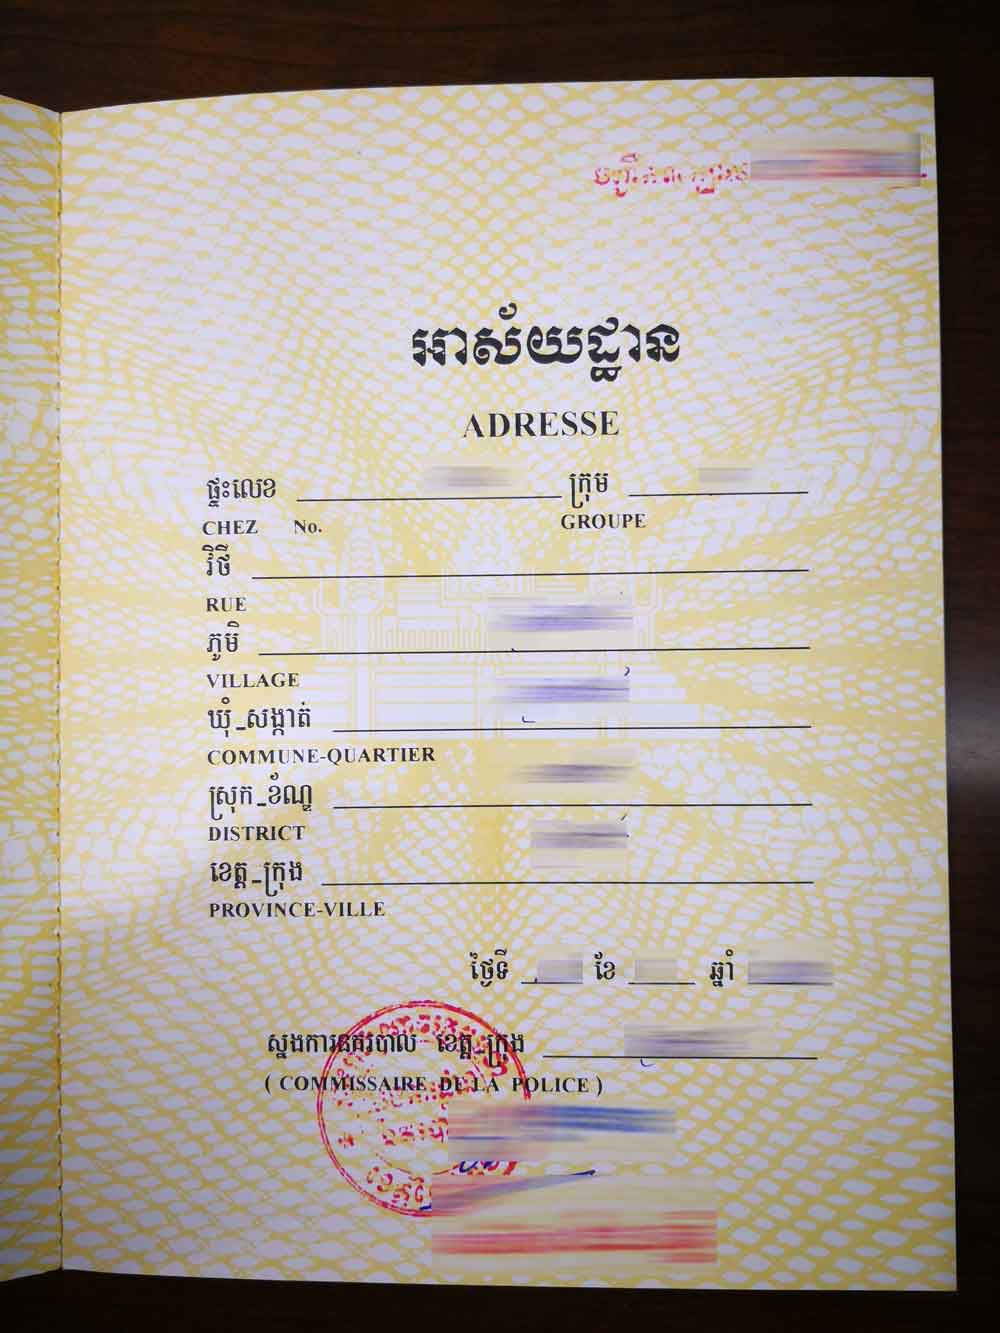 អាស័យដ្ឋាន
ADRESSE
ផ្ទះលេខ ក្រុម
CHEZ No. GROUPE
វិថី
RUE
ភូមិ
VILLAGE
ឃុំ-សង្កាត់
COMMUNE-QUARTIER
ស្រុក-ខ័ណ្ឌ
DISTRICT
ខេត្ត-ក្រុង
PROVINCE-VILLE
ថ្ងៃទី ខែ ឆ្នាំ
ស្នងការនគរបាល ខេត្ត-ក្រុង
( COMMISSAIRE DE LA POLICE )